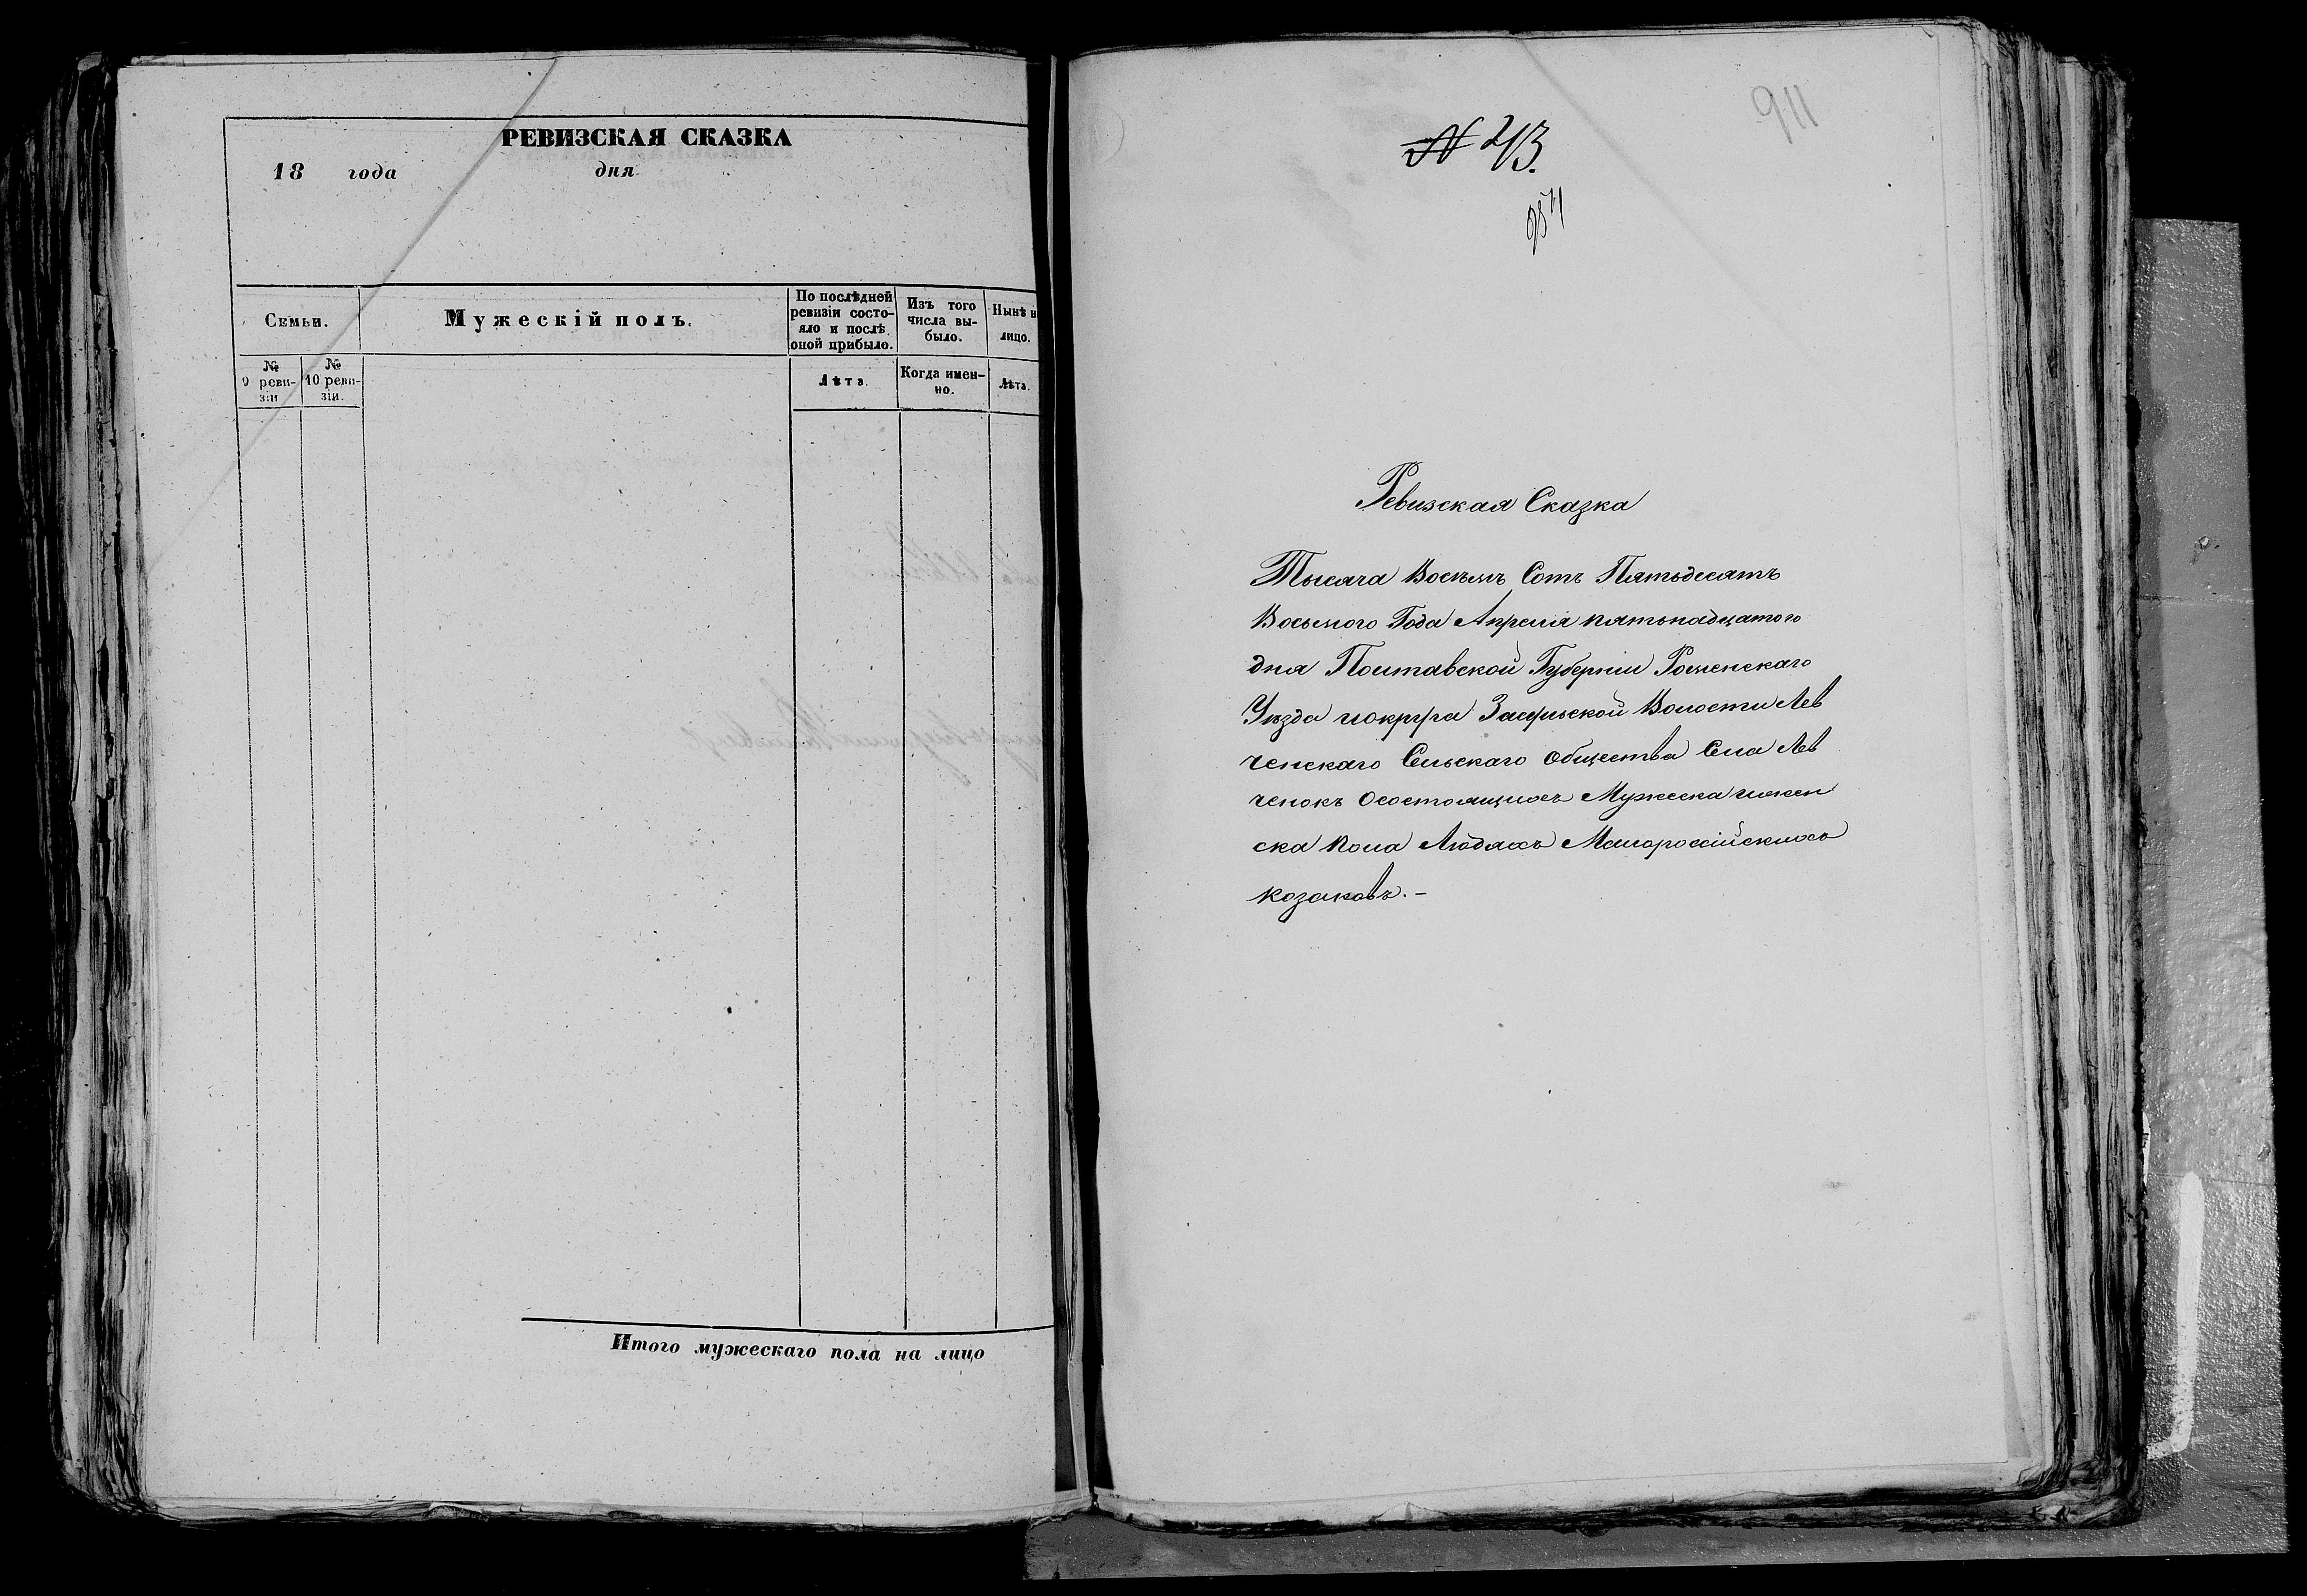 РЕВИЗСКАЯ СКАЗКА
18 года дня
Семьи.
Мужескій полъ.
По послѣдней ревизіи состояло и послѣ оной прибыло.
Изъ того числа выбыло.
Нынѣ на лицо.
№ 9 ревизіи
№ 10 ревизіи.
Лѣта.
Когда именно.
Лѣта.
Итого мужескаго пола на лицо
911
№ 213.
Ревизская Сказка
Тысяча Восемь Сотъ Пятьдесятъ
Восьмого Года Апреля пятьнадцатого
дня Полтавской Губерніи Роменскаго
Уѣзда иокруга Засульской Волости Лев
ченскаго Сельскаго Общества Села Лев
ченокъ Осостоящихъ Мужеска ижен
ска пола Людяхъ Малороссійскихъ
козаковъ.-